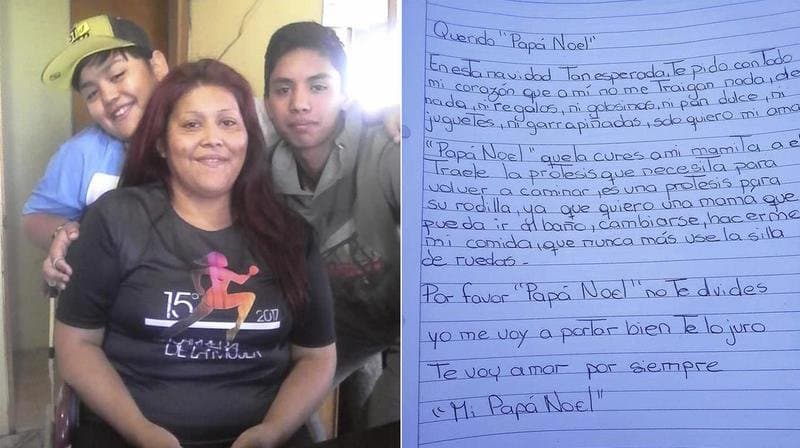 15°
2017
DE LA MUJER
Querido "Papá Noel"
En esta navidad Tan esperada, Te pido con Todo
mi corazón que a mí no me Traigan nada, de
nada, ni regalos, ni golosinas, ni pan dulce, ni
juguetes, ni garrapiñadas, solo quiero mi ama
"Papá Noel" que la cures a mi mamita a el
Traele la protesis que necesita para
volver a caminar, es una protesis para
su rodilla, ya que quiero una mamá que
pueda ir al baño, cambiarse, hacerme
mi comida, que nunca más use la silla
de ruedas.-
Por favor "Papá Noel" no Te olvides
yo me voy a portar bien Te lo juro
Te voy amar por siempre
"Mi Papá Noel"